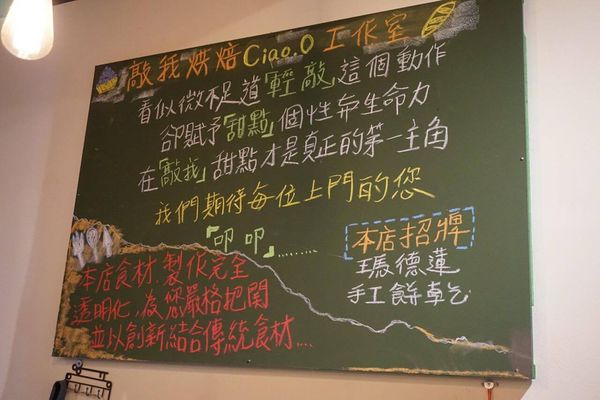 敲我烘焙Ciao.O工作室
看似微不足道「輕敲」這個動作
卻賦予「甜點」個性與生命力
在「敲我」甜點才是真正的第一主角
我們期待每位上門的您
「叩叩」………
本店招牌
瑪德蓮
手工餅乾
本店食材.製作完全
透明化，為您嚴格把關
並以創新結合傳統食材…